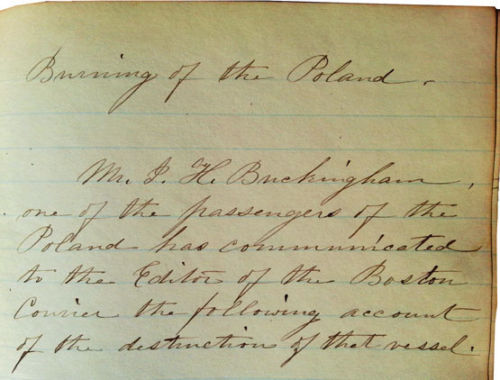 Burning of the Poland.
Mr. J. H. Buckingham,
one of the passengers of the
Poland has communicated
to the Editor of the Boston
Courier the following account
of the destruction of that vessel.